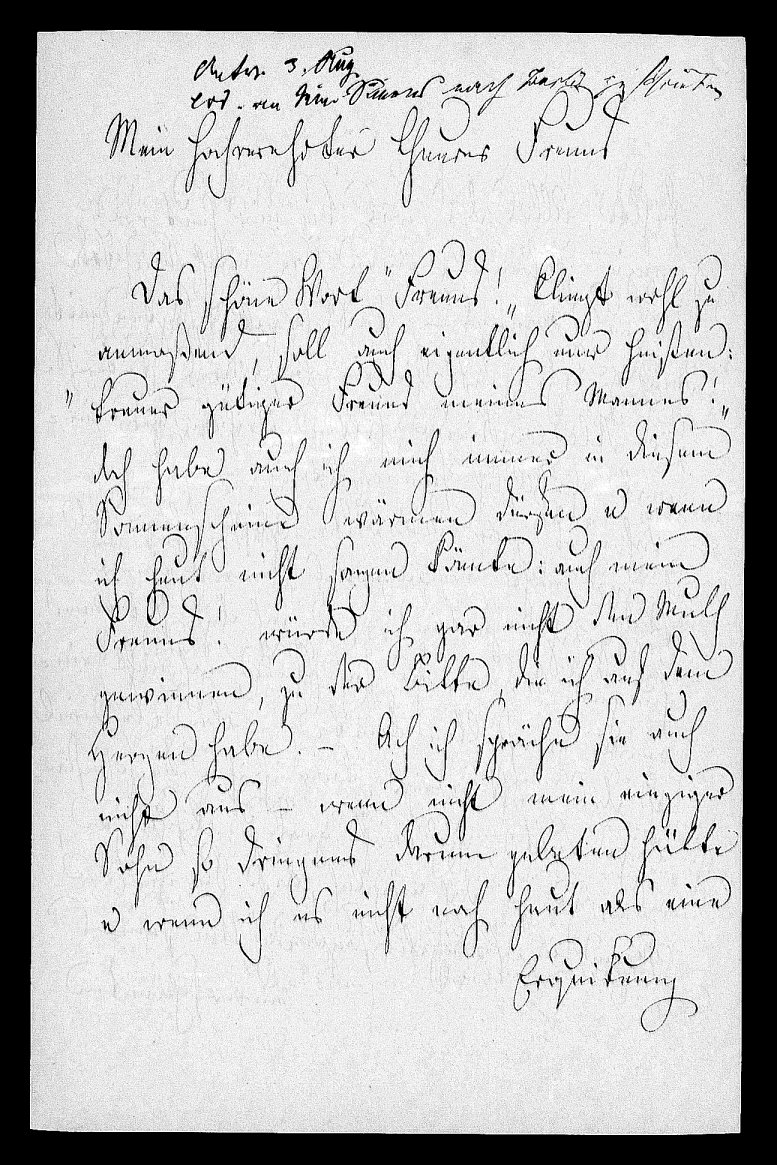 Antw. 3. Aug
erb. an Siemens nach Berlin zu schreiben
Mein hochverehrter theures Freund
Das schöne Wort "Freund!" klingt wohl zu
anmaßend, soll auch eigentlich nur heißen:
"treuer gütiger Freund meines Mannes!"
doch habe auch ich mich immer in diesem
Sonnenscheine wärmen dürfen u wenn
ich heut nicht sagen könte: auch mein
Freund! würde ich gar nicht den Muth
gewinnen, zu der Bitte, die ich auf dem
Herzen habe. – Ach ich spräche sie auch
nicht aus – wenn nicht mein einziger
Sohn so dringend darum gebeten hätte
u wenn ich es nicht noch heut als eine
Erquikung